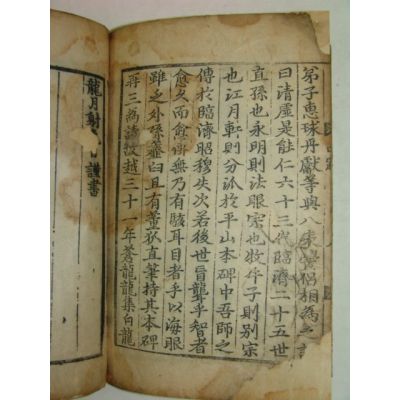 弟子惠球丹獻等與八侶相為
曰清虛是能仁六十三代臨濟二十五世
直孫也永明則法眼宗也牧牛子則別宗
也江月軒則分派於平山本碑中吾師之
傳於臨濟昭穆失次若後世盲聾乎智者
愈久而愈傳無乃有駭耳目者乎以海眼
雖乏外孫虀臼且有董狐直筆持其本碑
再三為請故越三十一年蒼龍龍集白龍
龍月射謹書